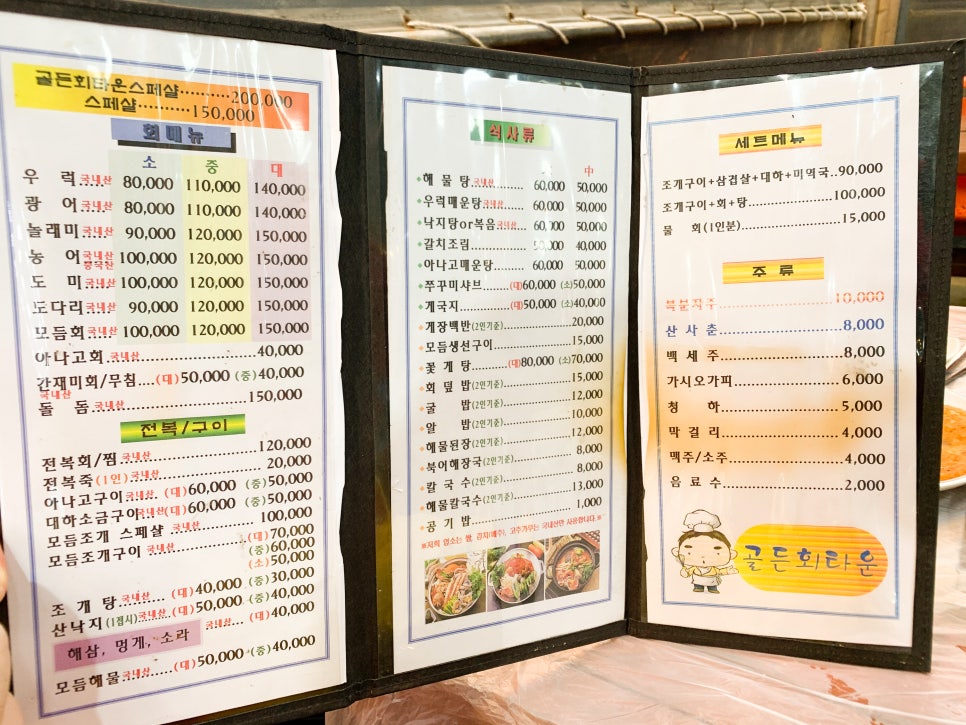 골든회타운스페샬..........200,000
스페샬..........150,000
회메뉴
소 중 대
우 럭국내산 80,000 110,000 140,000
광 어국내산 80,000 110,000 140,000
놀래미국내산 90,000 120,000 150,000
농 어국내산 100,000 120,000 150,000
도 미국내산 100,000 120,000 150,000
도다리국내산 90,000 120,000 150,000
모듬회국내산 100,000 120,000 150,000
아나고회국내산..........40,000
간재미회/무침....(대)50,000 (중)40,000
국내산
돌 돔국내산..........150,000
전복/구이
전복회/찜국내산..........120,000
전복죽(1인)국내산..........20,000
아나고구이국내산(대)60,000 (중)50,000
대하소금구이국내산(대)60,000 (중)50,000
모듬조개 스페샬 국내산..........100,000
모듬조개구이 국내산..........(대)70,000
(중)60,000
(소)50,000
조 개 탕국내산(대)40,000 (중)30,000
산낙지(1접시)국내산(대)50,000 (중)40,000
해삼, 멍게, 소라 국내산...(대)40,000
모듬해물국내산......(대)50,000 (중)40,000
식사류
中
해 물 탕국내산 60,000 50,000
우럭매운탕국내산 60,000 50,000
낙지탕or볶음국내산 60,000 50,000
갈치조림.......... 50,000 40,000
아나고매운탕.......... 60,000 50,000
쭈꾸미샤브..........(대)60,000 (소)50,000
게국지..........(대)50,000 (소)40,000
게장백반(2인기준)..........20,000
모듬생선구이..........15,000
꽃 게 탕..........(대)80,000 (소)70,000
회 덮 밥(2인기준)..........15,000
굴 밥(2인기준)..........12,000
알 밥(2인기준)..........10,000
해물된장(2인기준)..........12,000
북어해장국(2인기준)..........8,000
칼 국 수(2인기준)..........8,000
해물칼국수(2인기준)..........13,000
공 기 밥..........1,000
※저희 업소는 쌀, 김치(배추), 고추가루는 국내산만 사용합니다.※
세트메뉴
조개구이+삼겹살+대하+미역국..90,000
조개구이+회+탕..........100,000
물 회(1인분)..........15,000
주 류
복분자주..........10,000
산 사 춘..........8,000
백 세 주..........8,000
가시오가피..........6,000
청 하..........5,000
막 걸 리..........4,000
맥주/소주..........4,000
음 료 수..........2,000
골든회타운